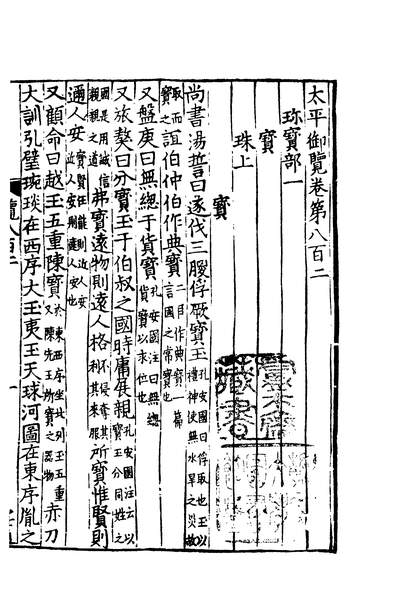 太平御覽卷第八百二
珍寶部一
寶
珠上
寶
尚書湯誓曰遂伐三朡俘厥寶玉孔安國曰俘取也玉以禮神使無水旱之災故
取而寶之誼伯仲伯作典寶二臣作典寶一篇言國之常寶也
又盤庚曰無緫于貨寶孔安國注曰無緫貨寶以求位也
又旅獒曰分寶玉于伯叔之國時庸展親孔安國注云以寶玉分同姓之
國是用誠信親親之道弗寶遠物則遠人格不侵奪其利其來服所寶惟賢則
邇人安寶賢任能則近人安近人安則遠人安也
又顧命曰越玉五重陳寶於東西序坐北列玉五重又陳先王所寶之器物赤刀
大訓引璧琬琰在西序大玉夷玉天球河圖在東序胤之